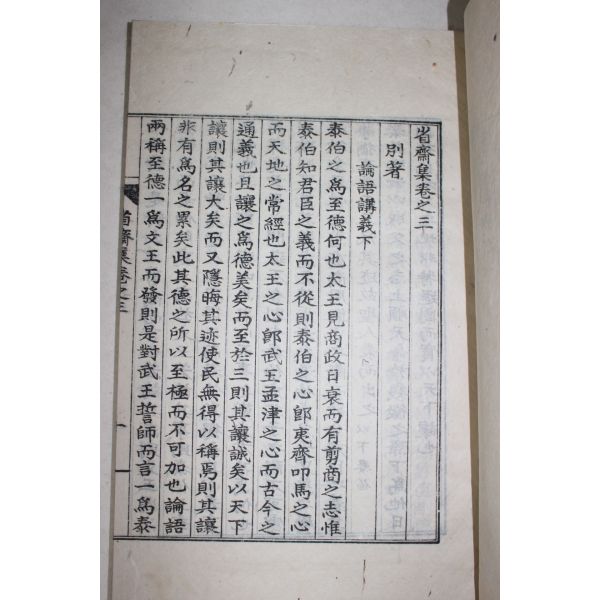 省齋集卷之三十
別著
論語講義下
泰伯之爲至德何也太王見商政日衰而有剪商之志惟
泰伯知君臣之義而不從則泰伯之心卽夷齊叩馬之心
而天地之常經也太王之心卽武王孟津之心而古今之
通義也且讓之爲德美矣而至於三則其讓誠矣以天下
讓則其讓大矣而又隱晦其迹使民無得以稱焉則其讓
非有爲名之累矣此其德之所以至極而不可加也論語
兩稱至德一爲文王而發則是對武王誓師而言一爲泰
省齋集卷之三